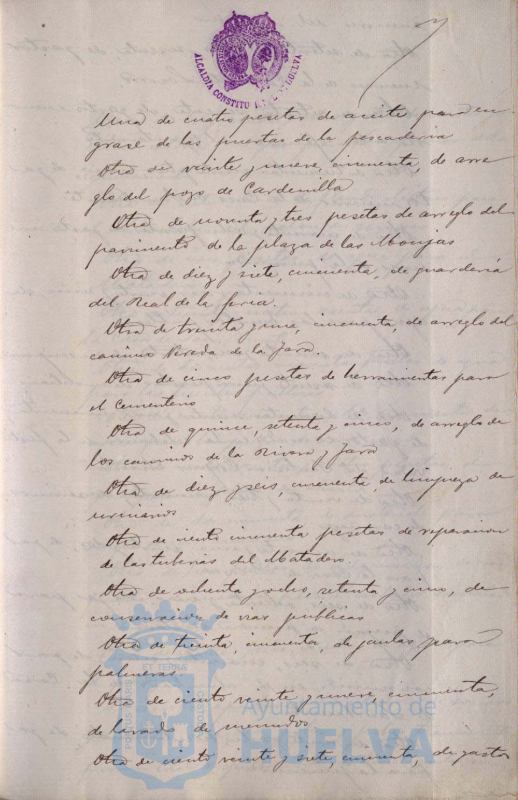 ALCALDIA CONSTITU
HUELVA
Una de cuatro pesetas de aceite para en
grase de las puertas de la pescaderia
Otra de veinte y nueve, cincuenta, de arre
glo del pozo de Cardenilla
Otra de noventa y tres pesetas de arreglo del
pavimento de la plaza de las Monjas
Otra de diez y siete, cincuenta, de guarderia
del Real de la feria.
Otra de treinta y una, cincuenta, de arreglo del
camino Vereda de la Jara.
Otra de cinco pesetas de herramientas para
el cementerio
Otra de quince, setenta y cinco, de arreglo de
los caminos de la Rivera y Jara
Otra de diez y seis, cincuenta, de limpieza de
urinarios
Otra de ciento cincuenta pesetas de reparacion
de las tuberias del Matadero.
Otra de ochenta y ocho, setenta y cinco, de
conservacion de vias publicas
Otra de treinta, cincuenta, de jaulas para
palmeras
Otra de ciento veinte y nueve, cincuenta,
de lavado de menudos
Otra de ciento veinte y siete, cincuenta, de gastos
PORTUS MARIS
ET TERRÆ
CUSTODIO
Ayuntamiento de
HUELVA